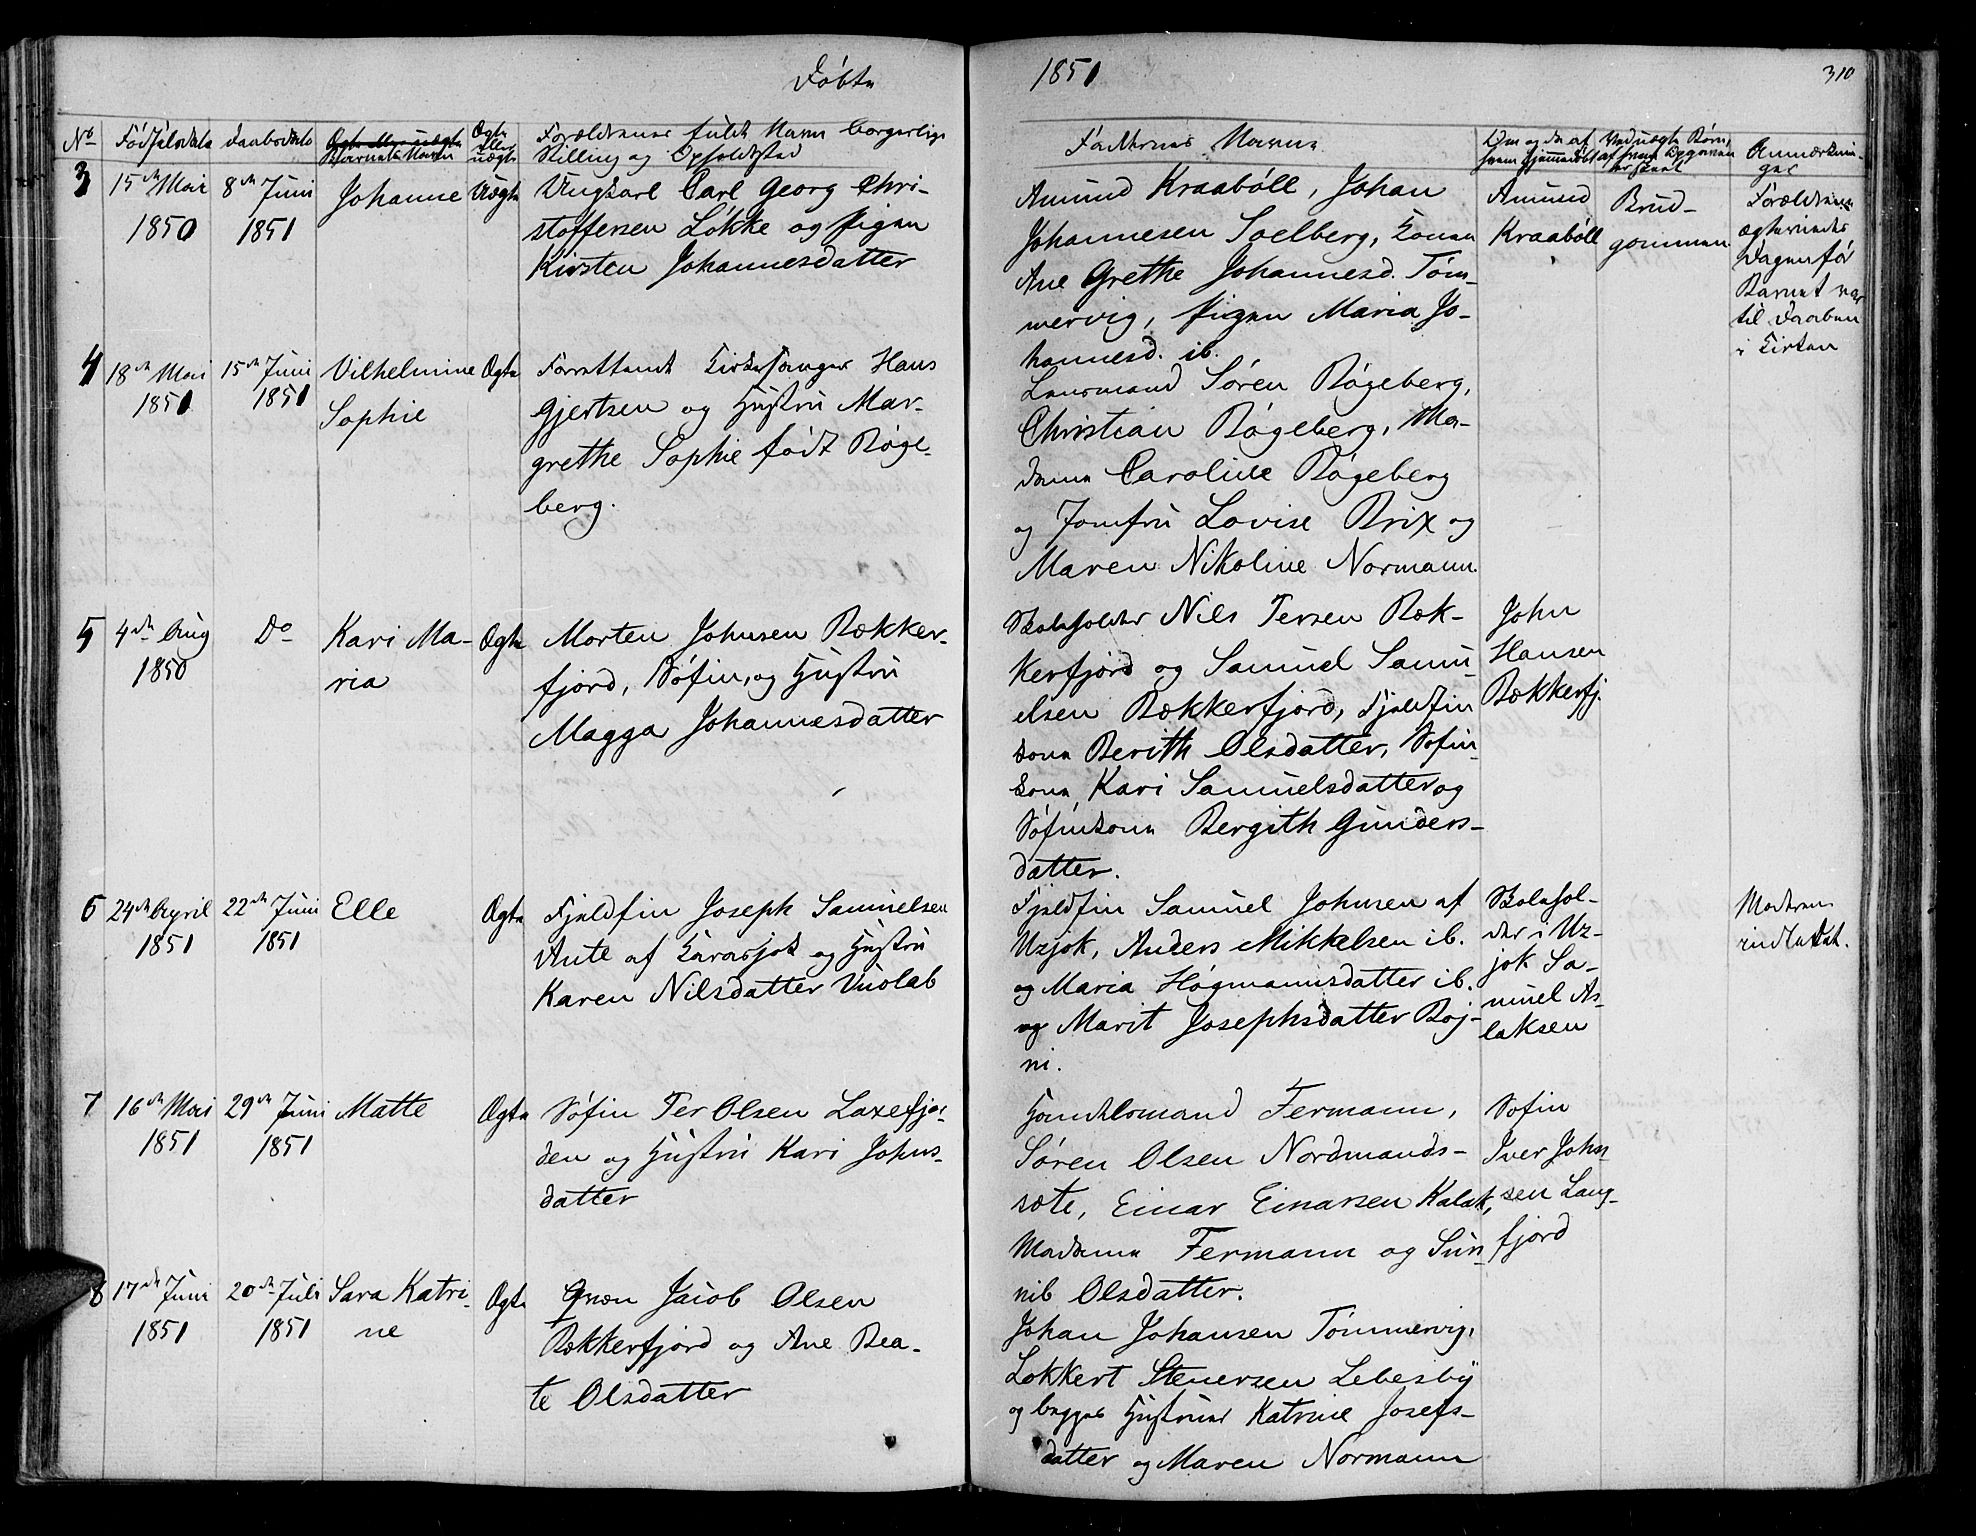 Döbte
1851
310
No
Födselsdato
Daabsdato
Barnets Navn
Ægte
eller
uægte
Forældrenes fulde Navn borgerlige
Stilling og Opholdsted
Faddernes Navne
Om og da af
hvem hjemmedöbt
Ved uægte Börn,
Anmærknin-
ger
3
15de Mai
1850
8de Juni
1851
Johanne
Uægte
Ungkarl Carl Georg Chri-
stoffersen Lökke og Pigen
Kirsten Johannesdatter
Amund Kraaböll, Johan
Johannesen Soelberg, Konen
Ane Grethe Johannesd. Töm-
mervig, Pigen Maria Jo-
hannesd. ib.
Amund
Kraaböll
Brud-
gommen
Forældrene
ægteviedes
Dagen för
Barnet var
til Daaben
i Kirken
4
18de Mai
1851
15de Juni
1851
Vilhelmine
Sophie
Ægte
Forrettende Kirkesanger Hans
Gjertsen og Hustru Mar-
grethe Sophie födt Röge-
berg.
Lensmand Sören Rögeberg,
Christian Rögeberg, Ma-
dame Caroline Rögeberg
og Jomfru Lovise Brix og
Maren Nikoline Normann.
5
4de Aug
1850
Do
Kari Ma-
ria
Ægte
Morten Johnsen Bekker-
fjord, Söfin, og Hustru
Magga Johannesdatter
Skoleholder Nils Persen Bek-
kerfjord og Samuel Samu-
elsen Bekkerfjord, Fjeldfin
kone Berith Olsdatter, Söfin-
kone Kari Samuelsdatter og
Söfinkone Bergith Gunders-
datter.
John
Hansen
Bekkerfj.
6
24de April
1851
22de Juni
1851
Elle
Ægte
Fjeldfin Joseph Samuelsen
Ante af Karasjok og Hustru
Karen Nilsdatter Vuolab
Fjeldfin Samuel Johnsen af
Uzjok, Anders Mikkelsen ib.
og Maria Högmannsdatter ib.
og Marit Josephsdatter Böj-
ni.
Skolehol-
der i Uz-
jok Sa-
muel As-
laksen
Moderen
indledet.
7
16de Mai
1851
29de Juni
1851
Matte
Ægte
Söfin Per Olsen Laxefjor-
den og Hustru Kari Johns-
datter
Handelsmand Fermann,
Sören Olsen Nordmands-
sæte, Einar Einarsen Kalak,
Madame Fermann og Sun
nib Olsdatter.
Söfin
Iver John-
sen Lang-
fjord
8
17de Juni
1851
20de Juli
1851
Sara Katri-
ne
Ægte
Qvæn Jacob Olsen
Bekkerfjord og Ane Bea-
te Olsdatter
Johan Johansen Tömmervig,
Lokkert Stenersen Lebesby
og begges Hustruer Katrine Josefs-
datter og Maren Normann